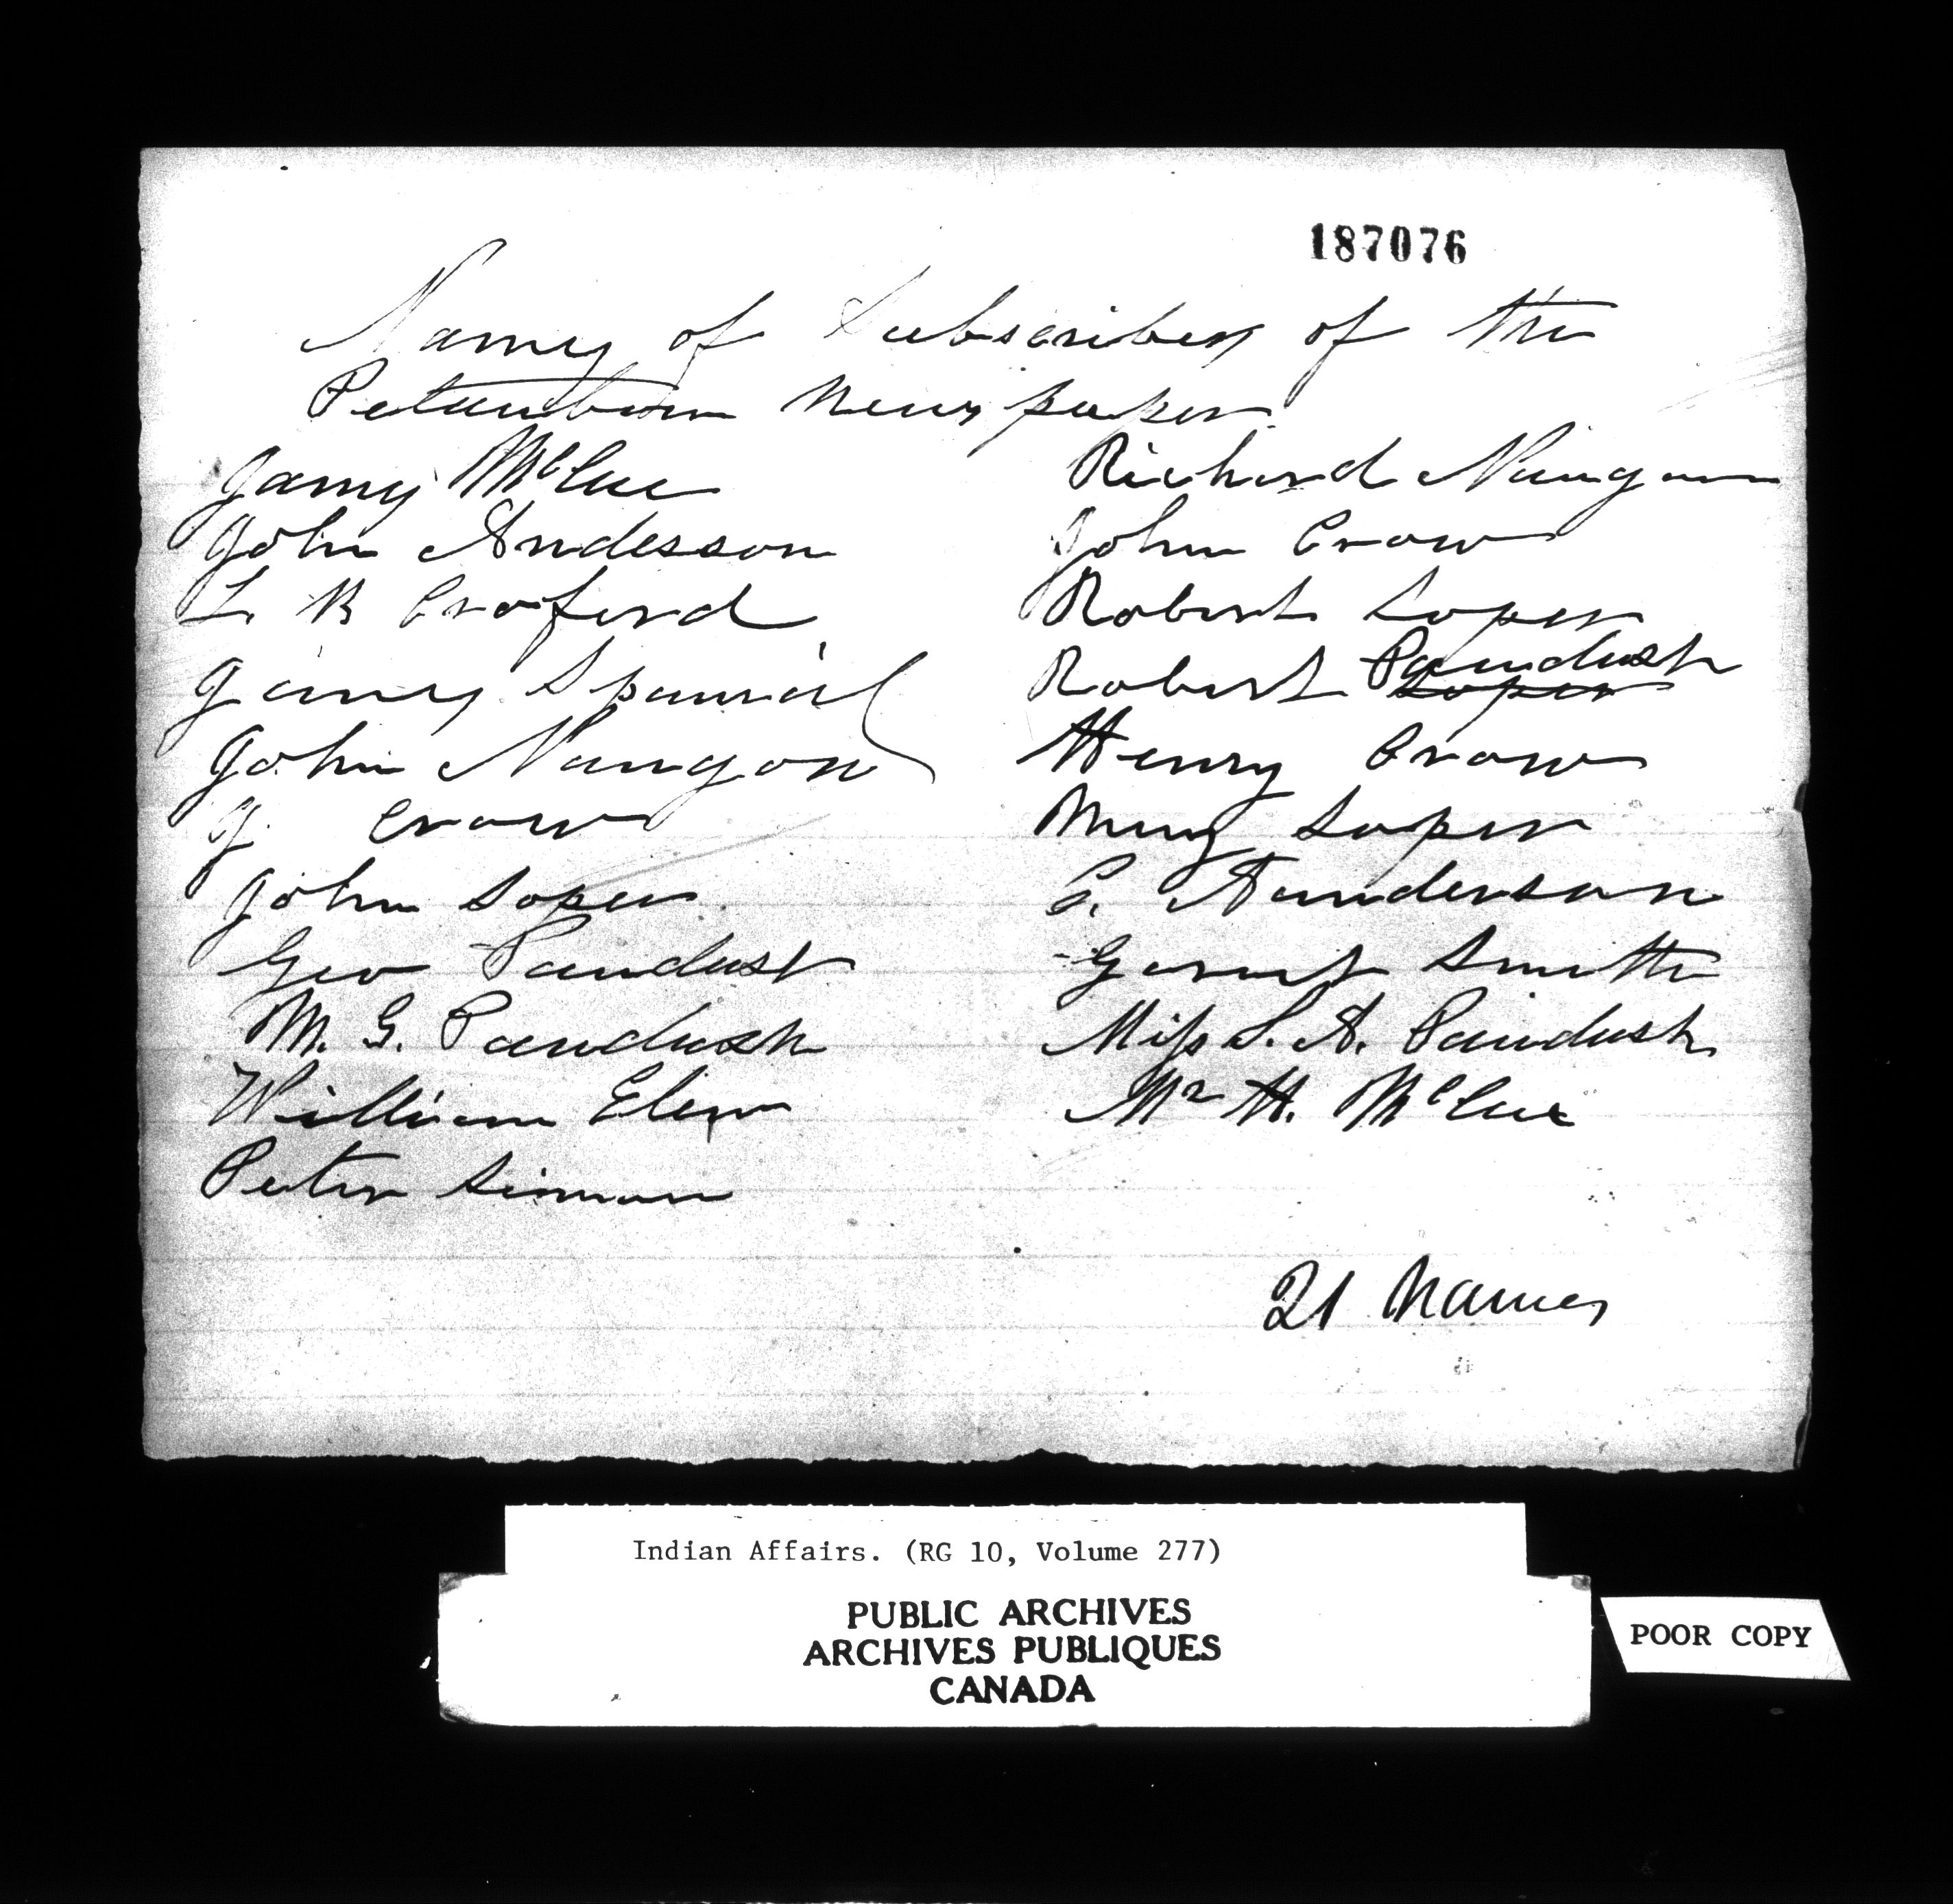 187076
Names of Subscribers of the
Petaubun Newspaper
James McCue
John Andesson
L R Croferd
James Spaniel
John Naugon
J. Crow
John Soper
Geo Paudush
M. G. Paudush
William Elen
Peter Simmon
Richard Naugon
John Crow
Robert Soper
Robert Soper Paudush
Henry Crow
Mery Soper
C. Aunderson
Gerat Smith
Miss S. A. Paudush
Mr H. McCue
21 Names
Indian Affairs. (RG 10, Volume 277)
PUBLIC ARCHIVES
ARCHIVES PUBLIQUES
CANADA
POOR COPY